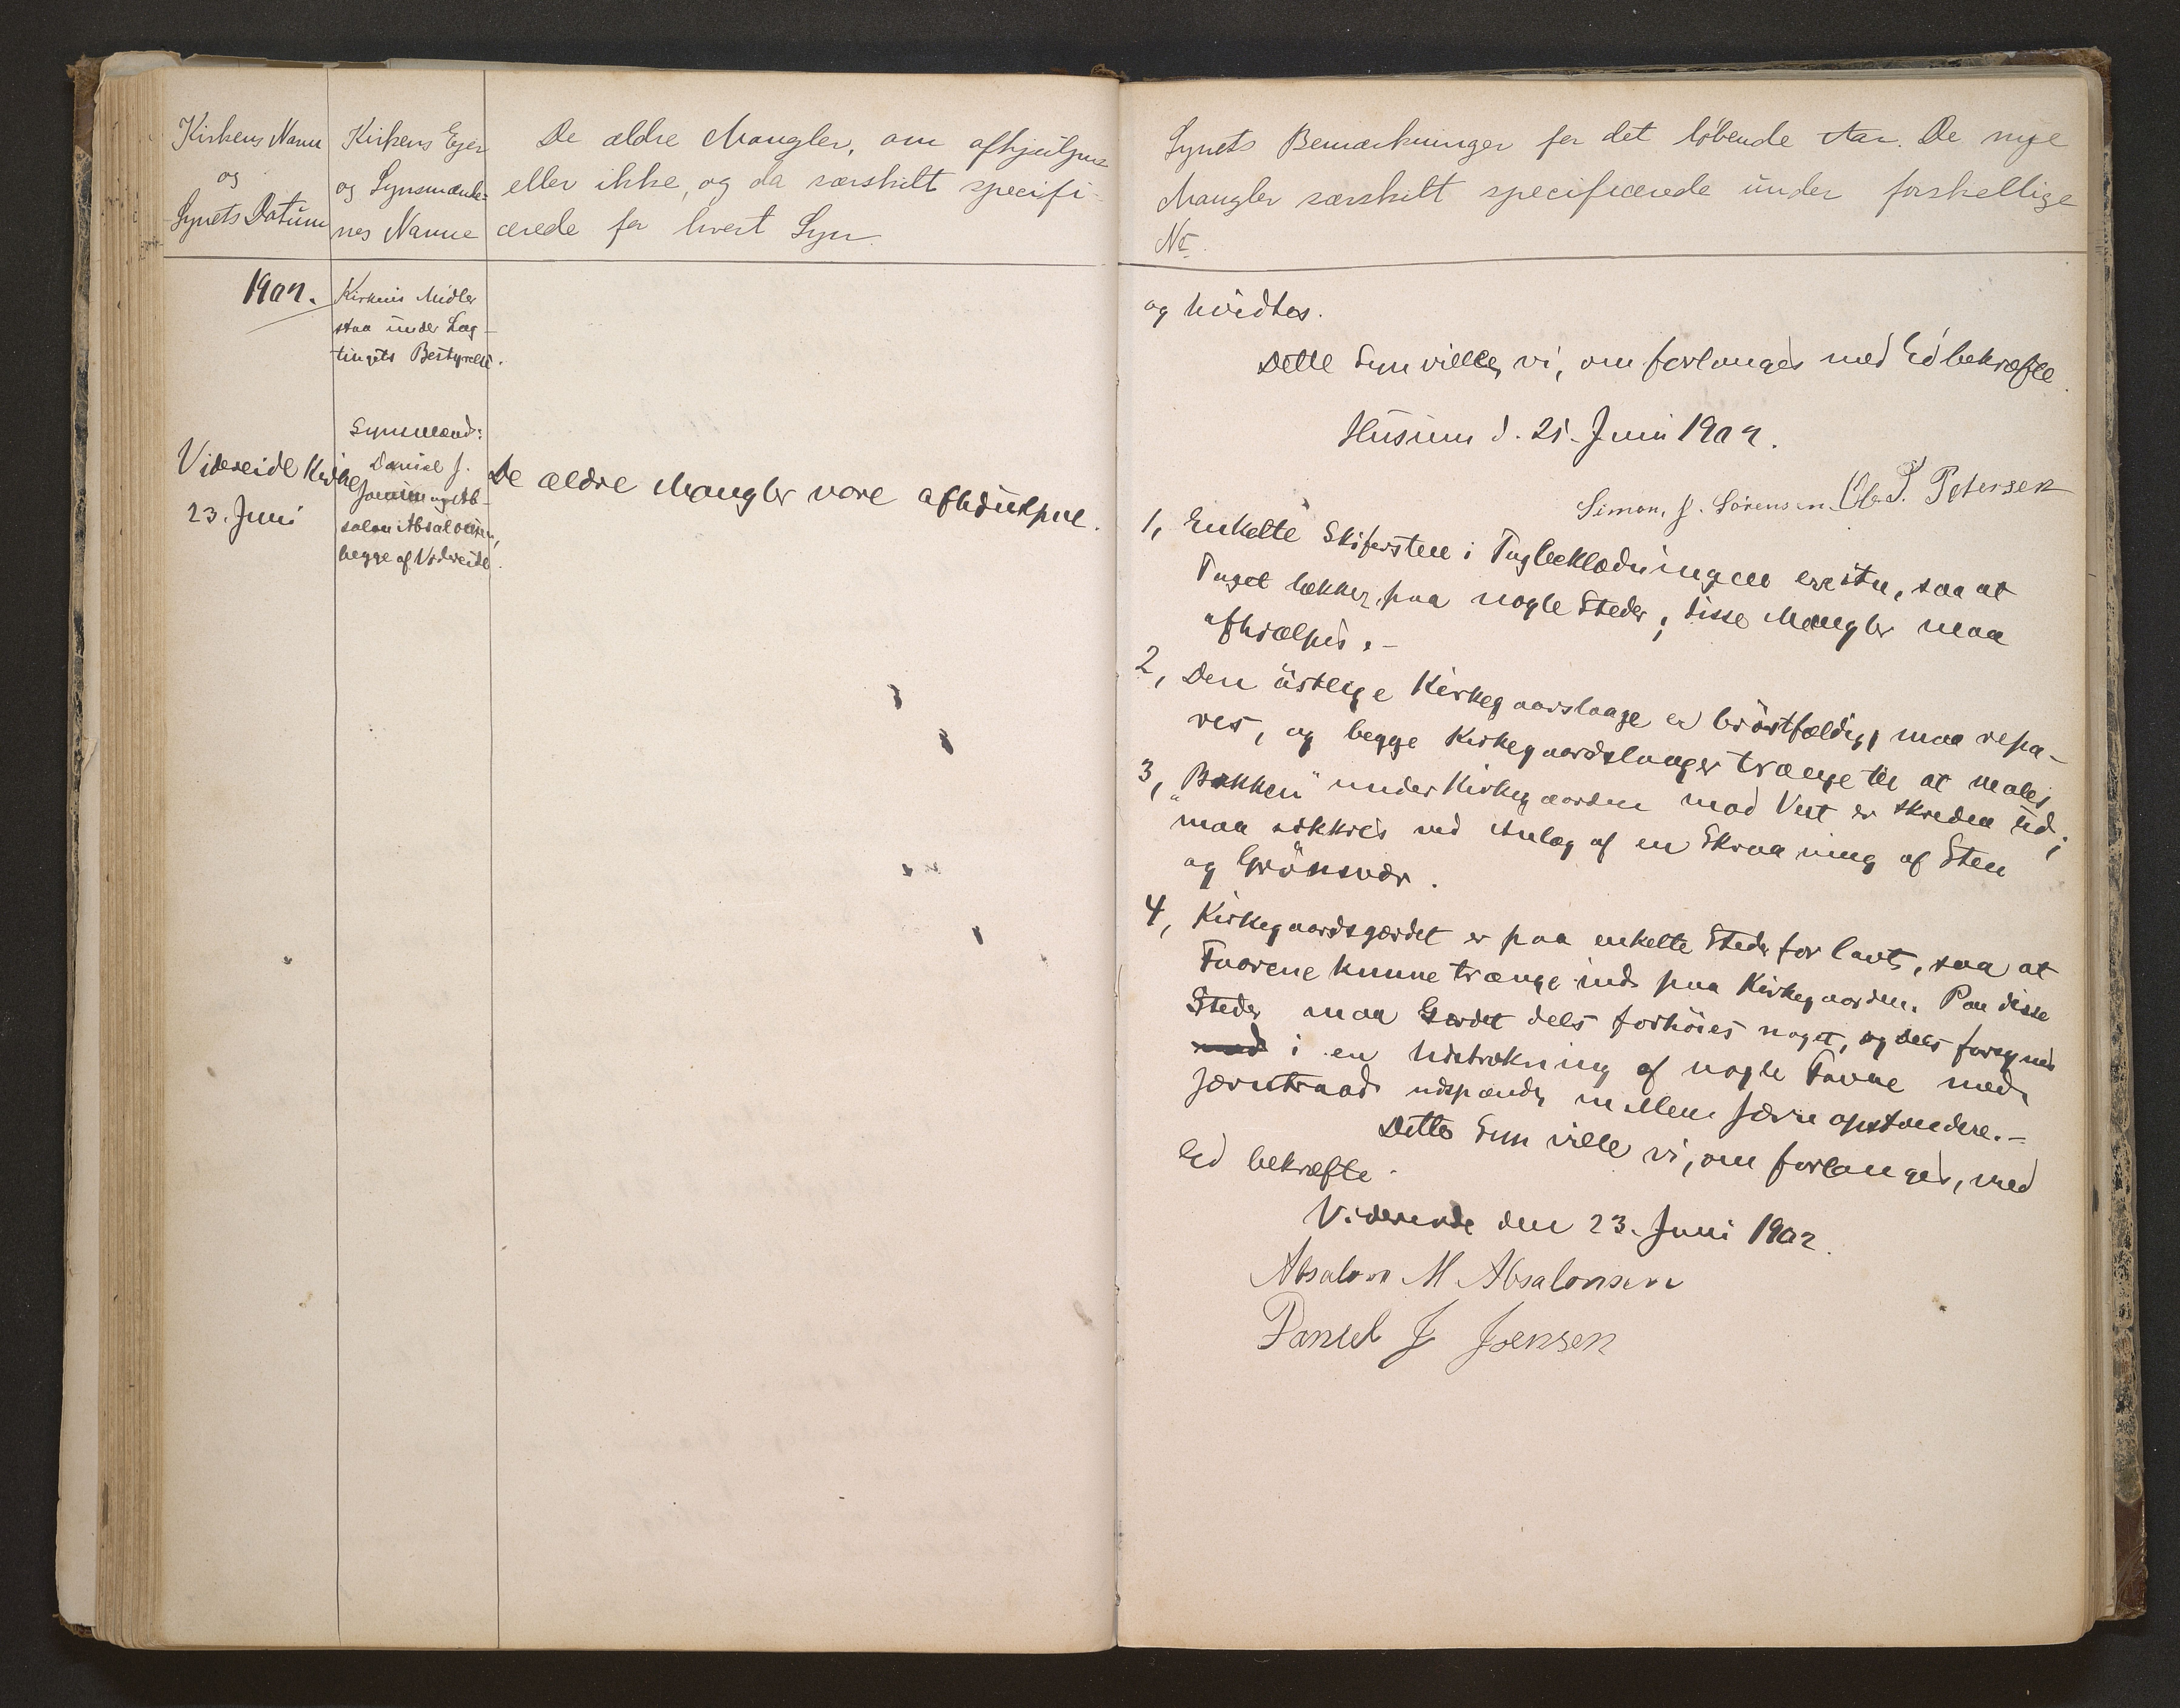 Kirkens Navn
og
Synets Datum
Kirkens Ejer
og Synsmænde-
nes Navne
De ældre Mangler, om afhjulpne
eller ikke, og da særskilt specifi-
cerede for hvert Syn.
1902.
Kirkens Midler
staa under Lag-
tingets Bestyrelse.
Synsmænd:
Videreide Kirke
23. Juni
Daniel J.
Joensen og Ab-
salon Absalonsen,
begge af Videreide.
De ældre Mangler vare afhjulpne.
Synets Bemærkninger for det løbende Aar. De nye
Mangler særskilt specificerede under forskellige
Nr.
og hvidtes.
Dette Syn ville vi, om forlanges med Ed bekræfte.
Husum d. 21. Juni 1902.
Simon, J. Sörensen. Ole P. Petersen
1, Enkelte Skifersten i Tagbeklædningen ere itu, saa at
Taget lækker paa nogle Steder; disse Mangler maa
afhjælpes.-
2, Den östlige Kirkegaardslaage er bröstfældig, maa repa-
res, og begge Kirkegaardslaager trænge til at males,
3, "Bakken" under Kirkegaarden mod Vest er skreden ud;
maa sikkres ved Anlæg af en Skraaning af Sten
og Grönsvær.
4, Kirkegaardsgærdet er paa enkelte Steder for lavt, saa at
Faarene kunne trænge ind paa Kirkegaarden. Paa disse
Steder maa Gærdet dels forhöies noget, og dels forsynes
med i en Udstrækning af nogle Favne med
Jærntraad udspændt mellem Jærnopstandere.-
Dette Syn ville vi, om forlanges, med
Ed bekræfte.
Videreide den 23. Juni 1902.
Absalon M Absalonsen
Daniel J Joensen